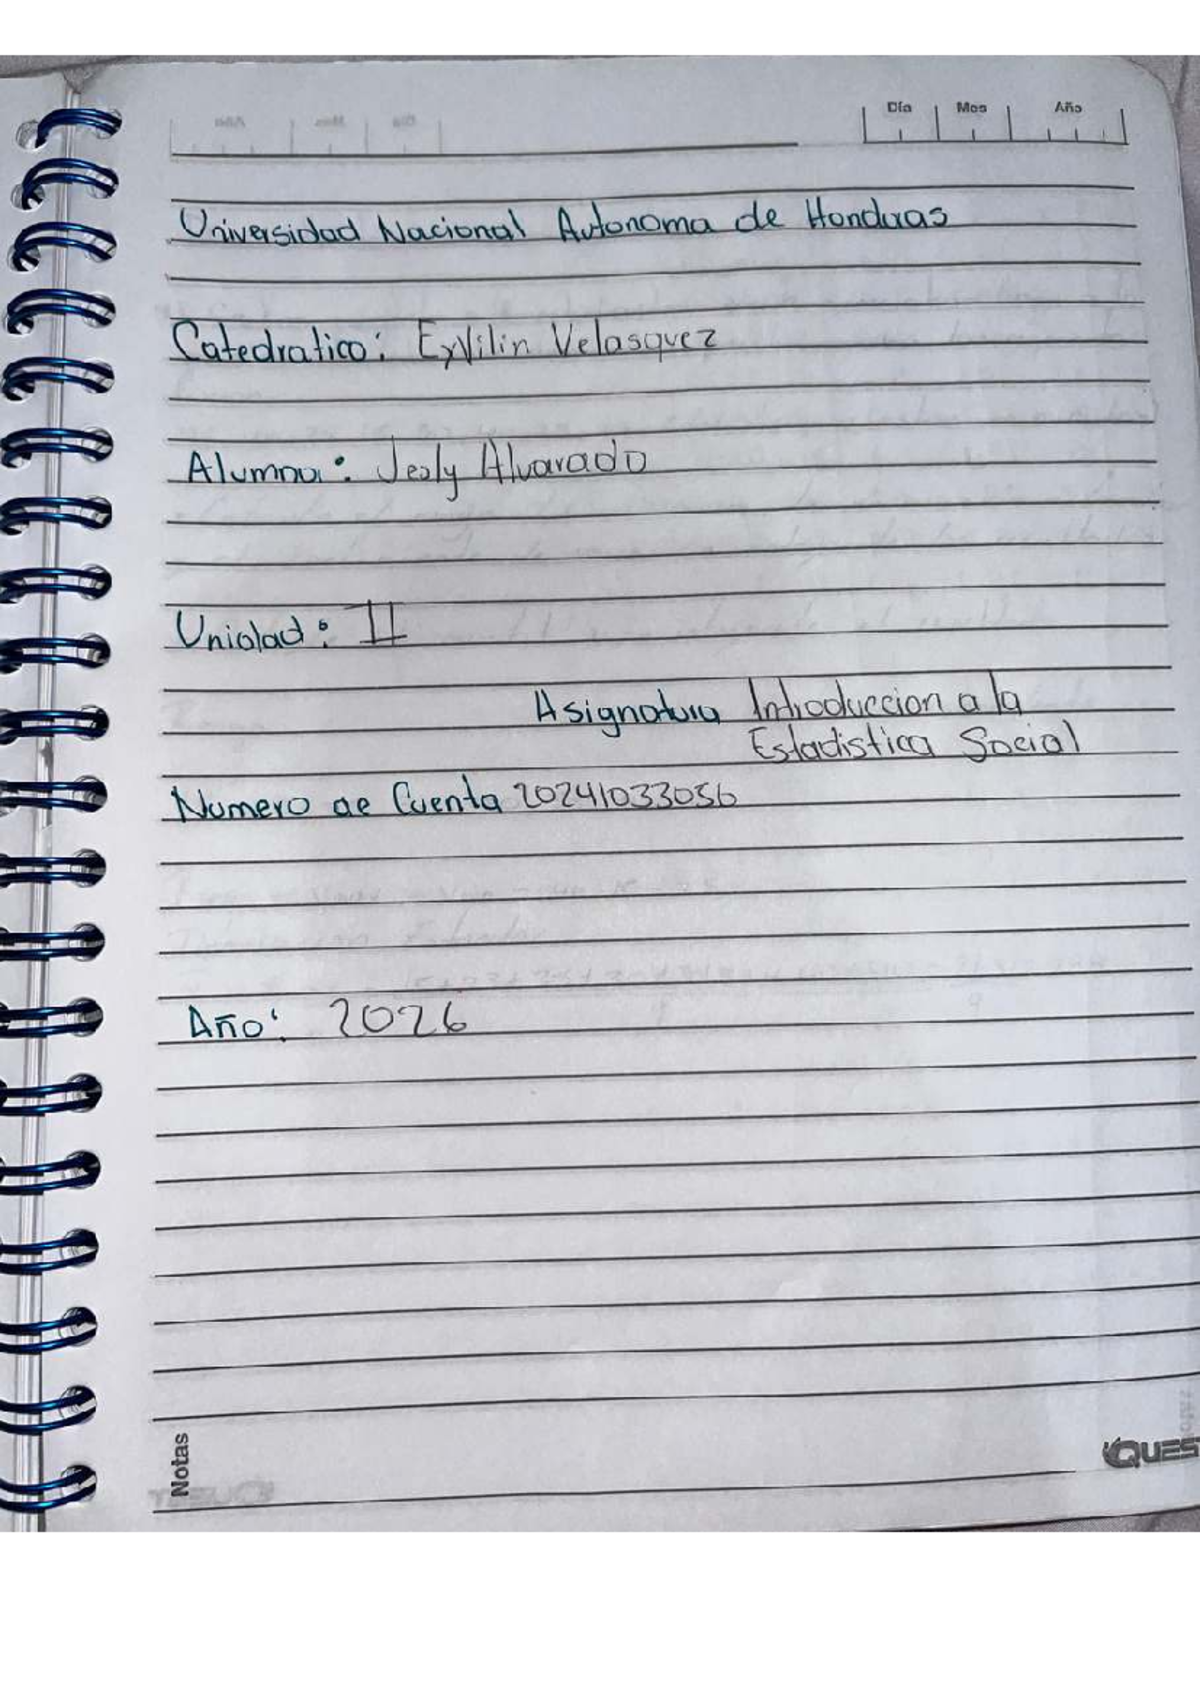 Día Mes Año
Universidad Nacional Autonoma de Honduas
Catedratico: Eyvilin Velasquez
Alumna: Jesly Alvarado
Unidad: II
Asignatura Introduccion a la
Estadistica Social
Numero de Cuenta 20241033056
Año: 2026
Notas
QUEST